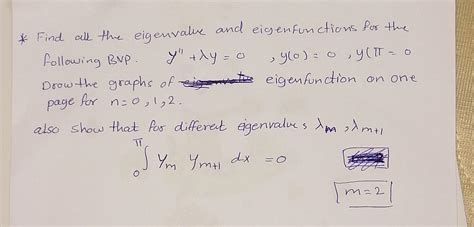 * Find all the eigenvalue and eigenfunctions for the
following BVP. y'' + λy = 0 , y(0) = 0 , y(π = 0
Draw the graphs of eigenfunction on one
page for n=0,1,2.
also show that for different eigenvalues λm , λm+1
∫₀^π Ym Ym+1 dx = 0
m=2